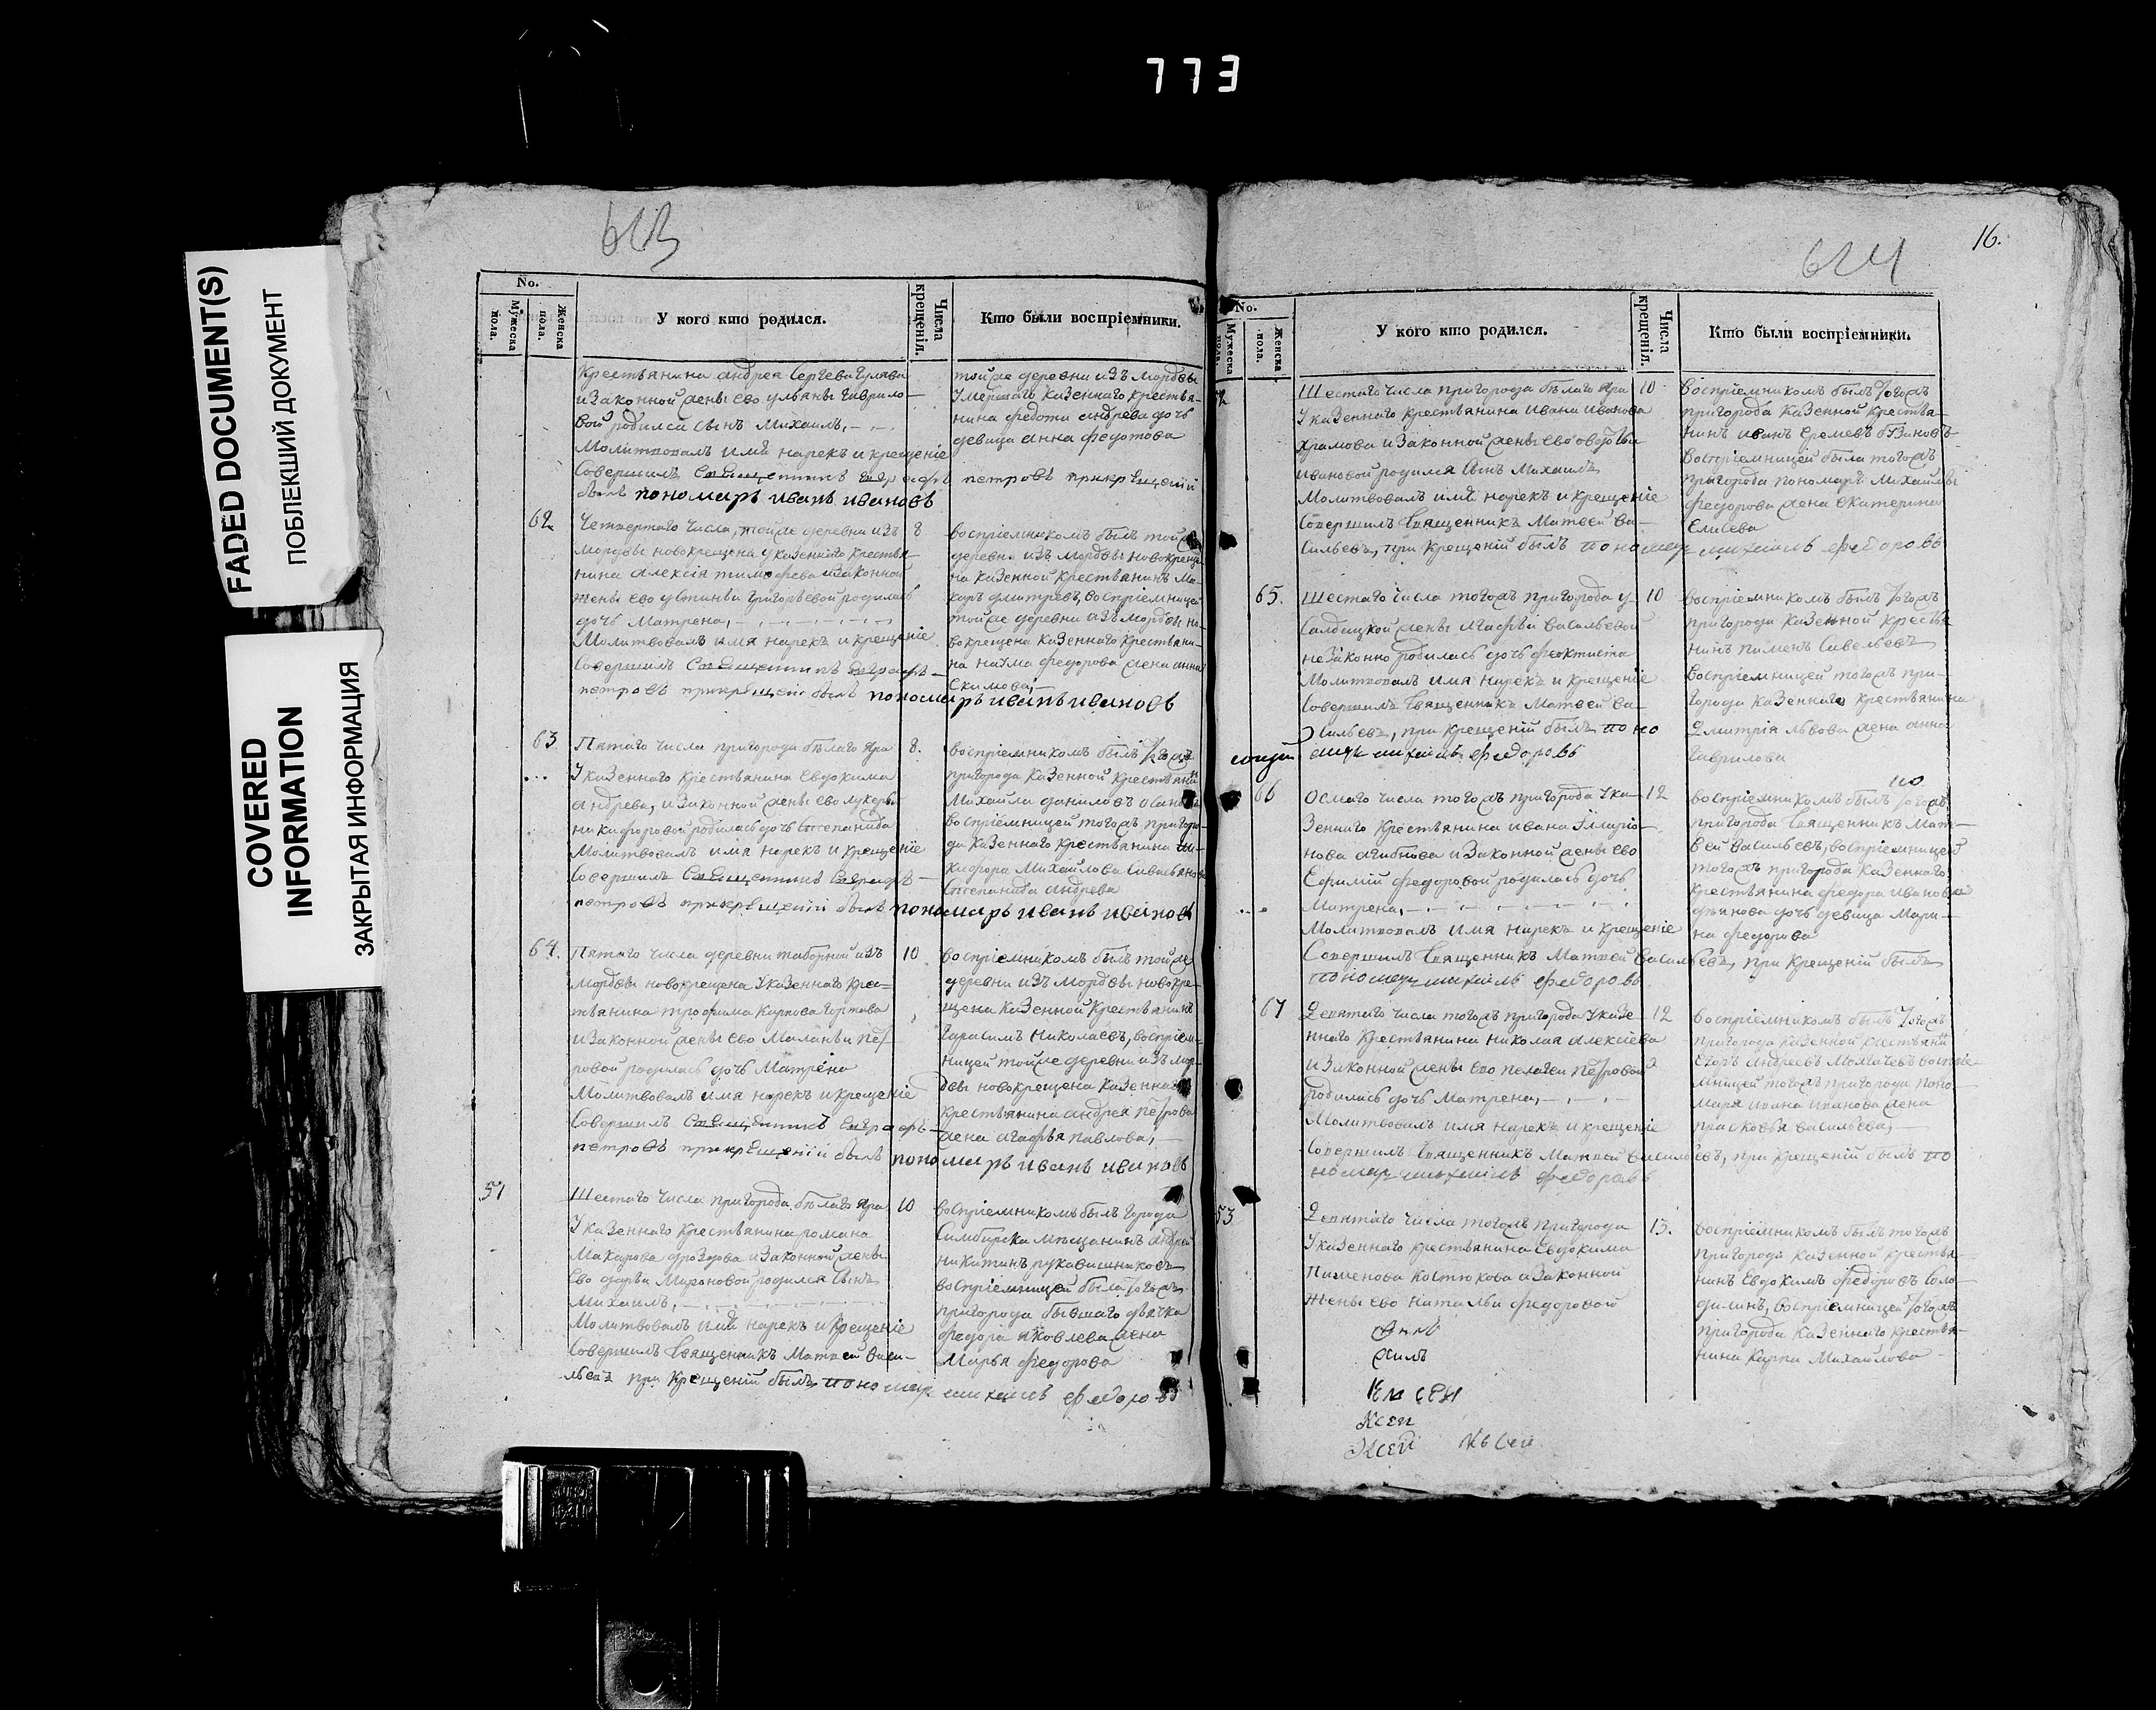 773
FADED DOCUMENT(S)
ПОБЛЕКШИЙ ДОКУМЕНТ
COVERED
INFORMATION
ЗАКРЫТАЯ ИНФОРМАЦИЯ
No.
Мужеска пола.
Женска пола.
У кого кто родился.
Числа крещенія.
Кто были воспріемники.
Крестьянина андрея Сергева
и законной жены ево ульяны Гаврило-
вой родился сынъ Михаилъ,
Молитвовалъ имя нарекъ и крещеніе
Совершилъ Священникъ Евграфъ петровъ прикрещеніи
былъ пономарь иванъ ивановъ
тойже деревни изъ мордвы
умершаго казеннаго крестья-
нина федота андрева дочь
девица анна федотова
62
Четвертаго числа, тойже деревни изъ
мордвы новокрещена указеннаго крестья-
нина алексія тимофева и законной
жены ево устиньи григорьевой родилась
дочь Матрена,
Молитвовалъ имя нарекъ и крещеніе
Совершилъ Священникъ Евграфъ
петровъ прикрещеніи былъ пономарь иванъ ивановъ
8
воспріемникомъ былъ тойже
деревни изъ мордвы новокреще
на казенной крестьянинъ Ма-
каръ дмитревъ, воспріемницей
тойже деревни изъ мордвы но-
вокрещена казеннаго крестьяни-
на наума федорова жена анна
63
Пятаго числа пригорода белаго яра
Указеннаго крестьянина Евдокима
андрева, и законной жены ево лукерьи
никифоровой родилась дочь Степанида
Молитвовалъ имя нарекъ и крещеніе
Совершилъ Священникъ Евграфъ
петровъ прикрещеніи былъ пономарь иванъ ивановъ
8.
воспріемникомъ былъ тогожъ
пригорода казенной крестьянин
Михайла даниловъ
воспріемницей тогожъ пригоро-
да казеннаго крестьянина ни-
кифора Михайлова
Степанида андрева
64.
Пятаго числа деревни таборной изъ
мордвы новокрещена Указеннаго крес-
тьянина трофима Карпова
и законной жены ево Маланьи пет-
ровой родилась дочь Матрена
Молитвовалъ имя нарекъ и крещеніе
Совершилъ Священникъ Евграфъ
петровъ прикрещеніи былъ пономарь иванъ ивановъ
10
воспріемникомъ былъ тойже
деревни изъ мордвы новокре-
щена казенной крестьянинъ
Гарасимъ Николаевъ, воспріем-
ницей тойже деревни изъ мор-
двы новокрещена казеннаго
крестьянина андрея петрова
жена агафья павлова,
51
Шестаго числа пригорода белаго яра
Указеннаго крестьянина романа
Макарова дроздова и законной жены
Ево дарьи Мироновой родился сынъ
Михаилъ,
Молитвовалъ имя нарекъ и крещеніе
Совершилъ Священникъ Матвей васи-
льевъ при крещеніи былъ пономарь михаилъ федоровъ
10
воспріемникомъ былъ города
Симбирска мещанинъ андрей
никитинъ рукавишниковъ
воспріемницей была тогожъ
пригорода бывшаго дьячка
федора яковлева жена
Марья федорова
16.
No.
Мужеска пола.
Женска пола.
У кого кто родился.
Числа крещенія.
Кто были воспріемники.
Шестаго числа пригорода белаго яра
Указеннаго крестьянина ивана иванова
храмова и законной жены ево
ивановой родился сынъ Михаилъ
Молитвовалъ имя нарекъ и крещеніе
Совершилъ Священникъ Матвей ва-
сильевъ, при крещеніи былъ пономарь михаилъ федоровъ
10
воспріемникомъ былъ тогожъ
пригорода казенной крестья-
нинъ иванъ Еремевъ
воспріемницей была тогожъ
пригорода пономаря Михайлы
федорова жена екатерина
Елисева
65.
Шестаго числа тогожъ пригорода у
Салдацкой жены агафьи васильевой
незаконно родилась дочь феоктиста
Молитвовалъ имя нарекъ и крещеніе
Совершилъ Священникъ Матвей ва-
сильевъ, при крещеніи былъ поно
марь михаилъ федоровъ
10
воспріемникомъ былъ тогожъ
пригорода казенной крестья
нинъ пименъ Савельевъ
воспріемницей тогожъ при-
города казеннаго крестьянина
Дмитрія львова жена анна
Гаврилова
66
Осмаго числа тогожъ пригорода Ука-
зеннаго крестьянина ивана Иларіо-
нова и законной жены ево
Ефиміи федоровой родилась дочь
Матрена,
Молитвовалъ имя нарекъ и крещеніе
Совершилъ Священникъ Матвей васильевъ, при крещеніи былъ
пономарь михаилъ федоровъ
12
воспріемникомъ былъ тогожъ
пригорода Священникъ Мат-
вей васильевъ, воспріемницей
тогожъ пригорода казеннаго
крестьянина федора иванова
дочь девица Мари-
на федорова
67
Девятаго числа тогожъ пригорода Указе-
ннаго крестьянина николая алексіева
и законной жены Ево пелагеи петровой
родилась дочь Матрена,
Молитвовалъ имя нарекъ и крещеніе
Совершилъ Священникъ Матвей васильевъ, при крещеніи былъ по
номарь михаилъ федоровъ
12
воспріемникомъ былъ тогожъ
пригорода казенной крестьянин
Егоръ андреевъ воспріе-
мницей тогожъ пригорода поно-
маря ивана иванова жена
прасковья васильева,
53
Девятаго числа тогожъ пригорода
Указеннаго крестьянина Евдокима
Пименова Костюкова и законной
жены ево натальи федоровой
13.
воспріемникомъ былъ тогожъ
пригорода казенной крестья-
нинъ Евдокимъ федоровъ Соло-
дилинъ, воспріемницей тогожъ
пригорода казеннаго крестья-
нина Карпа Михайлова